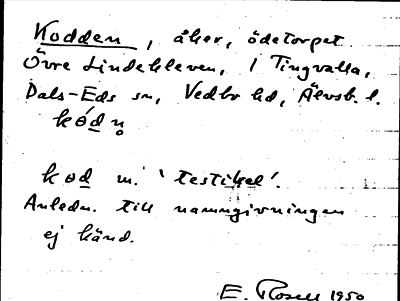 Kodden, åker, ödetorpet
Övre Lindekleven, i Tingvalla,
Dals-Eds sn, Vedbo hd, Älvsb. l.
kódn̥
kod m. 'testikel'.
Anledn. till namngivningen
ej känd.
E. Rosell 1950